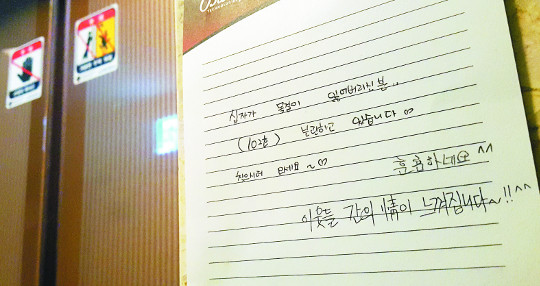 십자가 목걸이 잃어버리신 분..
(102호) 보관하고 있습니다 ♡
하세요 ~ ♡
훈훈하네요^^
이웃들 간의 情이 느껴집니다~!!^^